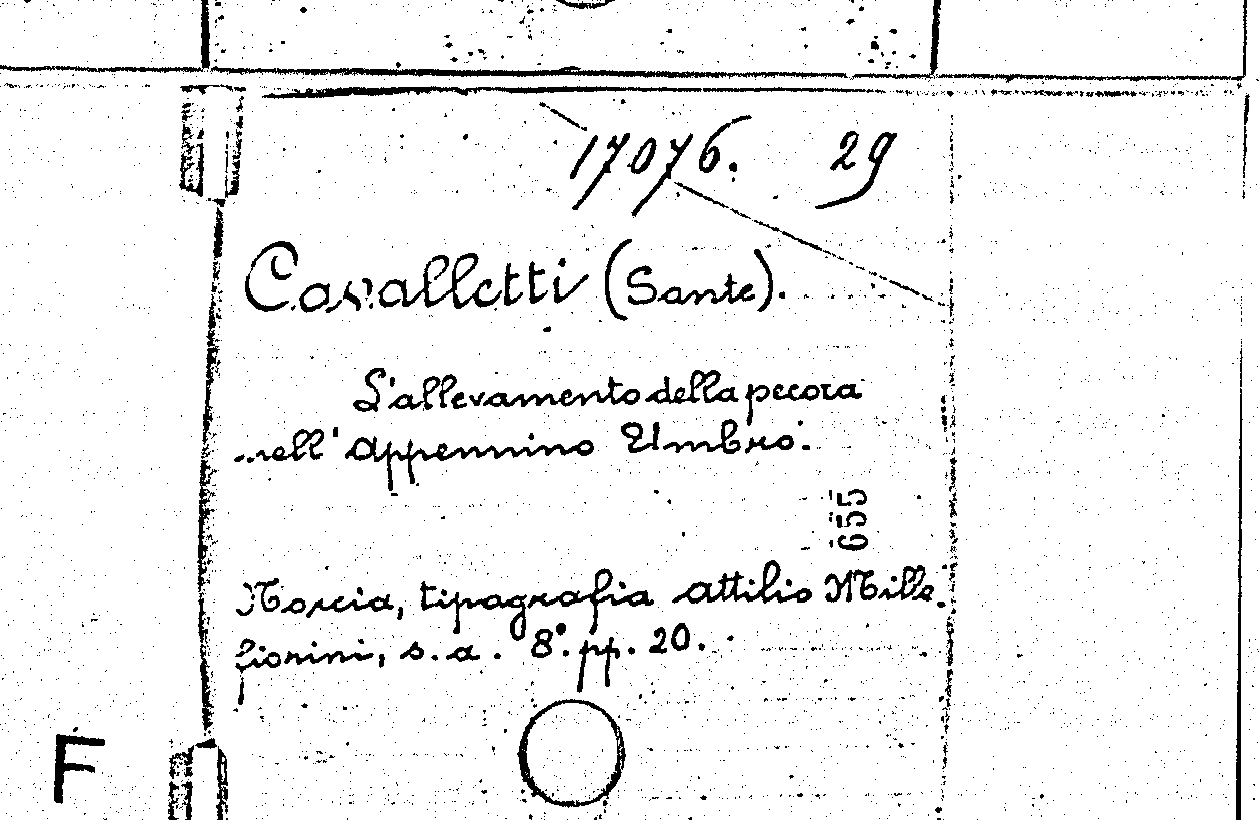 17076. 29
Cavalletti (Sante).
L'allevamento della pecora
nell' Appennino Umbro.
655
Norcia, tipografia Attilio Mille
fiorini, s.a. 8°. pp. 20.
F